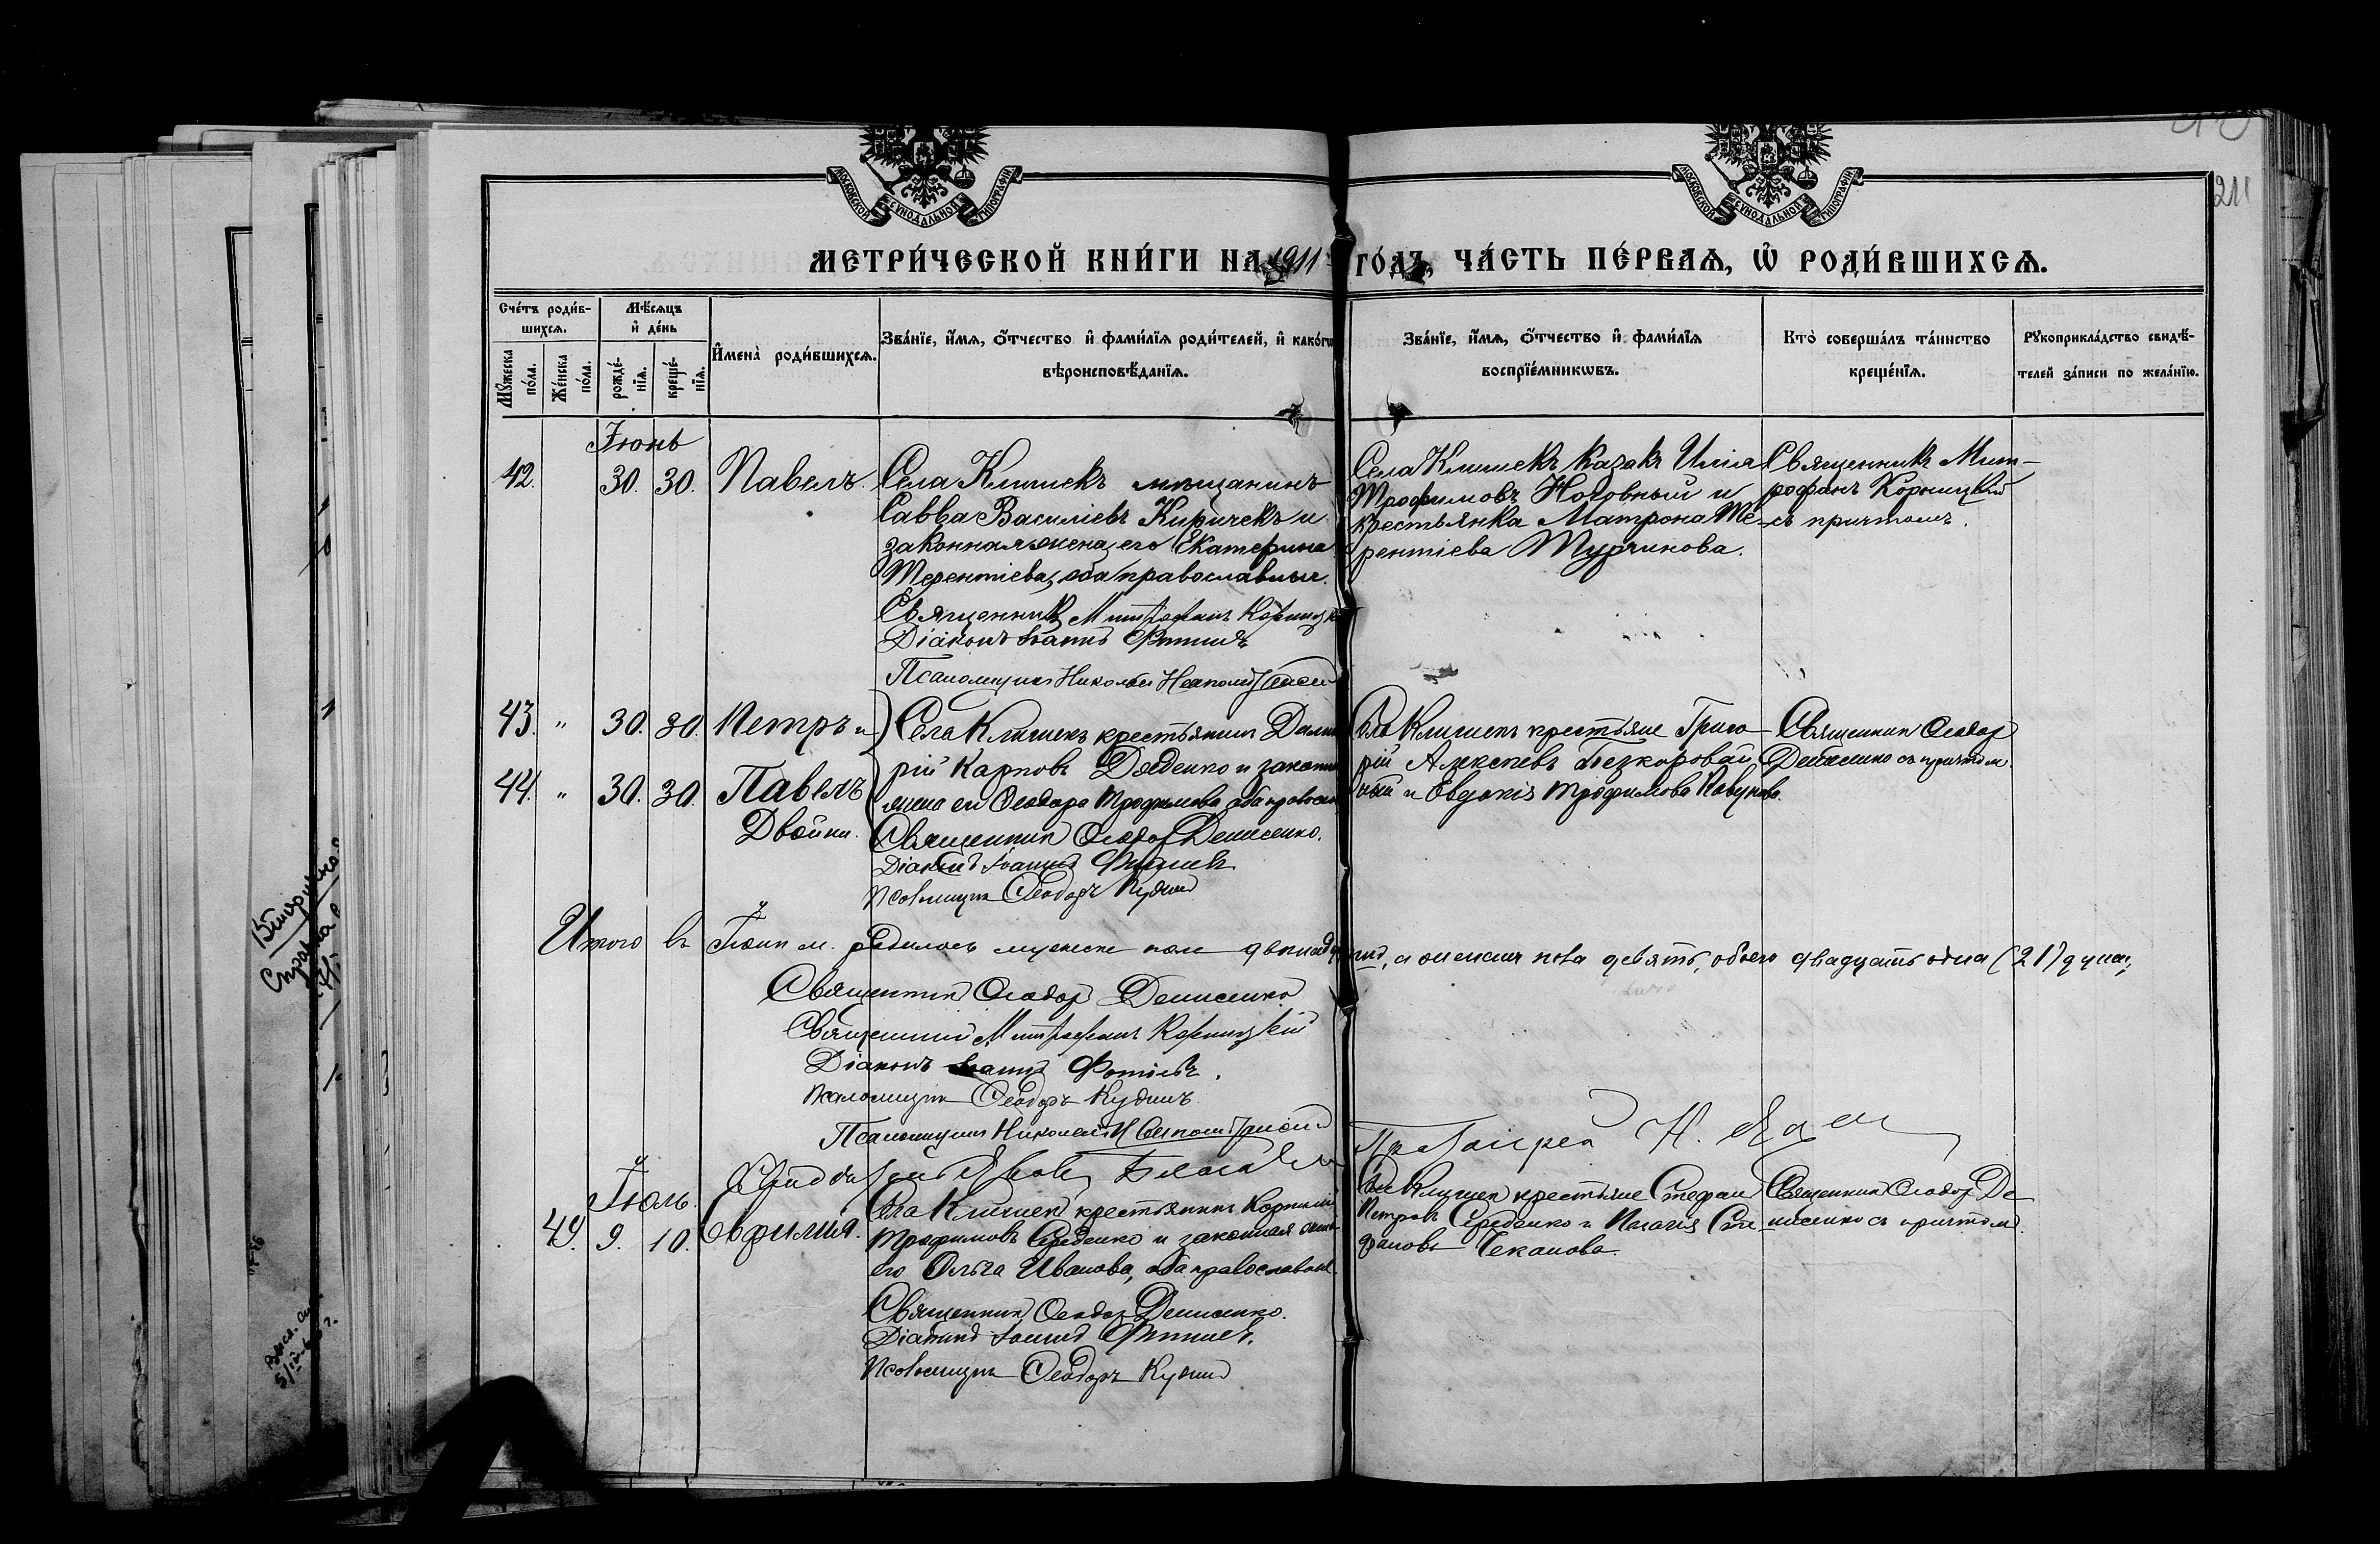 МОСКОВСКОЙ СУНОДАЛЬНОЙ ТИПОГРАФІИ
МОСКОВСКОЙ СУНОДАЛЬНОЙ ТИПОГРАФІИ
211
МЕТРИ́ЧЕСКОЙ КНИ́ГИ НА 1911 ГО́ДЪ, ЧА́СТЬ ПЕ́РВАѦ, Ѡ҆ РОДИ́ВШИХСѦ.
Счётъ роди́вшихсѧ.
Мꙋ́жеска по́ла.
Же́нска по́ла.
Мѣ́сѧцъ и҆ де́нь
рожде́нїѧ.
креще́нїѧ.
И҆мена̀ роди́вшихсѧ.
Зва́нїе, и҆́мѧ, ѻ҆́тчество и҆ фами́лїѧ роди́телей, и҆ како́гѡ
вѣроисповѣ́данїѧ.
Зва́нїе, и҆́мѧ, ѻ҆́тчество и҆ фами́лїѧ
воспрїе́мникѡвъ.
Кто̀ соверша́лъ та́инство
креще́нїѧ.
Рꙋкоприкла́дство свидѣ́-
телей за́писи по жела́нїю.
Іюнь
42. 30. 30. Павелъ.
Села Клишекъ мѣщанинъ
Савва Василіевъ Киричекъ и
законная жена его Екатерина
Терентіева, оба православные.
Священникъ Митрофанъ Корницкій
Діаконъ Іоаннъ Фотіевъ
Псаломщикъ Николай
Села Клишекъ казакъ Илія
Трофимовъ Ноговный и
крестьянка Матрона Те-
рентіева Турчинова.
Священникъ Мит-
рофанъ Корницкій
съ причтомъ.
43. " 30. 30. Петръ и
44. " 30. 30. Павелъ
Двойни.
Села Клишекъ крестьянинъ
рій Карповъ Дяденко и законная
жена его Ѳеодора Трофимова, оба православные
Священникъ Ѳеодоръ Денисенко.
Діаконъ Іоаннъ Фотіевъ
Псаломщикъ Ѳеодоръ Кудинъ
Села Клишекъ крестьяне Григо-
рій Алексѣевъ Безкоровай
ный и Евдокія Трофимова Кавунова.
Священникъ Ѳеодоръ
Денисенко съ причтом.
Итого въ Іюнѣ м. родилось мужеска пола двѣнадцать, а женска пола девять, обоего двадцать одна (21) душа;
Священникъ Ѳеодоръ Денисенко
Священникъ Митрофанъ Корницкій
Діаконъ Іоаннъ Фотіевъ.
Псаломщикъ Ѳеодоръ Кудинъ
Псаломщикъ Николай
Протоіерей Н.
Іюль.
49. 9. 10. Евфимія.
Села Клишекъ крестьянинъ Корнилій
Трофимовъ Середенко и законная жена
его Ольга Иванова, оба православные.
Священникъ Ѳеодоръ Денисенко.
Діаконъ Іоаннъ Фотіевъ.
Псаломщикъ Ѳеодоръ Кудинъ
Села Клишекъ крестьяне Стефанъ
Петровъ Середенко и Пелагія Сте
фанова Чеканова.
Священникъ Ѳеодоръ Де-
нисенко съ причтом.